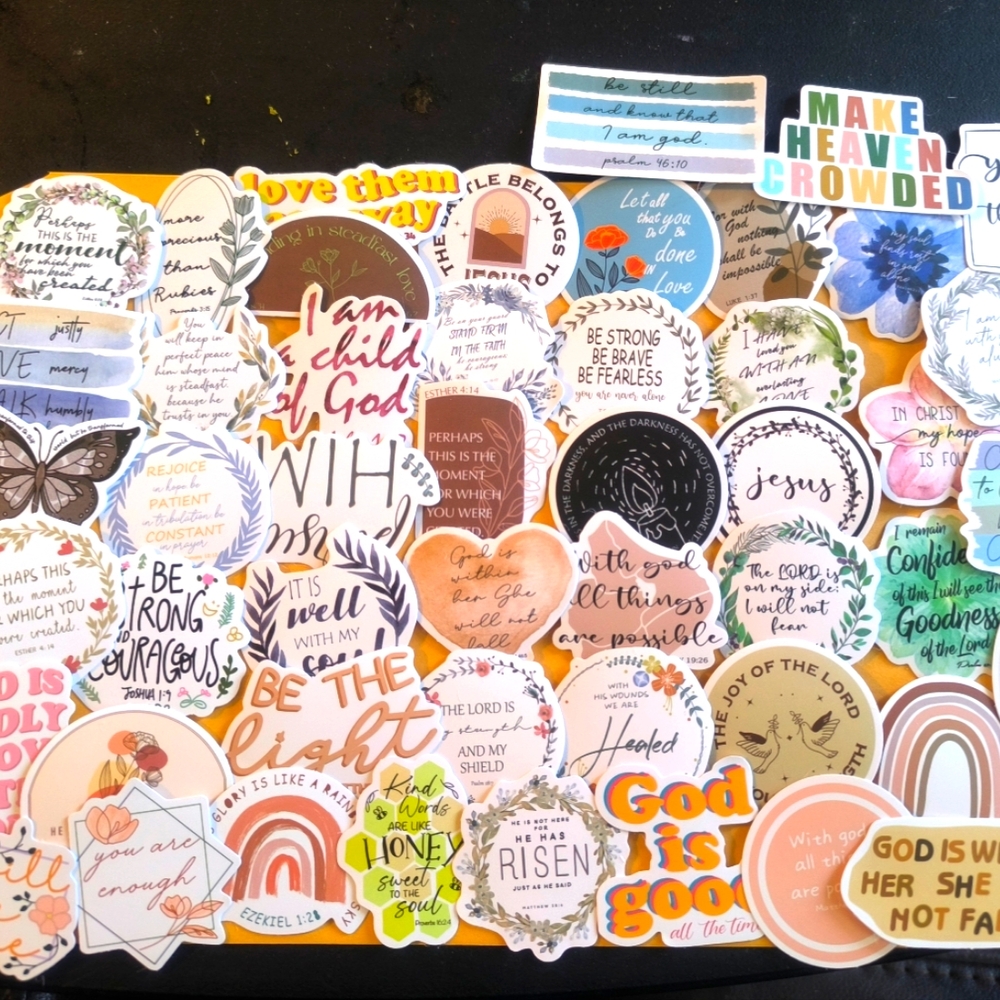 be still
and know that
I am god.
psalm 46:10
MAKE
HEAVEN
CROWDED
Perhaps
THIS IS THE
moment
for which you
have been
created.
more
precious
than
Rubies
love them
anyway
in steadfast love
BELONGS TO
JESUS
Let all
that you
Do Be
done
IN Love
for with
God
nothing
shall be
impossible
LUKE 1:37
justly
mercy
humbly
You
will keep in
perfect peace
him whose mind
is steadfast,
because he
trusts in you
I am
a child
of God
STAND FIRM
IN THE FAITH
be courageous
be strong
BE STRONG
BE BRAVE
BE FEARLESS
you are never alone
I HAVE
loved you
WITH AN
everlasting
IN CHRIST
my hope
IS FOU
REJOICE
in hope be
PATIENT
in tribulation, be
CONSTANT
in prayer
ESTHER 4:14
PERHAPS
THIS IS THE
MOMENT
FOR WHICH
YOU WERE
IN THE DARKNESS, AND THE DARKNESS HAS NOT OVERCOME IT
jesus
HAPS THIS
the moment
WHICH YOU
were created.
ESTHER 4:14
BE
STRONG
COURAGEOUS
JOSHUA 1:9
IT IS
well
WITH MY
soul
God is
within
her She
will not
fall
with god
all things
are possible
19:26
The LORD is
on my side;
I will not
fear
I remain
Confide
of this I will see the
Goodness
of the Lord
BE THE
light
THE LORD IS
my strength
AND MY
SHIELD
WITH
HIS WOUNDS
WE ARE
Healed
THE JOY OF THE LORD
you are
enough
GLORY IS LIKE A RAIN
EZEKIEL 1:28
SKY
Kind
Words
ARE LIKE
HONEY
sweet
TO THE
soul
Proverbs 16:24
HE IS NOT HERE
FOR
HE HAS
RISEN
JUST AS HE SAID
MATTHEW 28:6
God
is
good
all the time
With god
all thi
are po
GOD IS WI
HER SHE
NOT FA